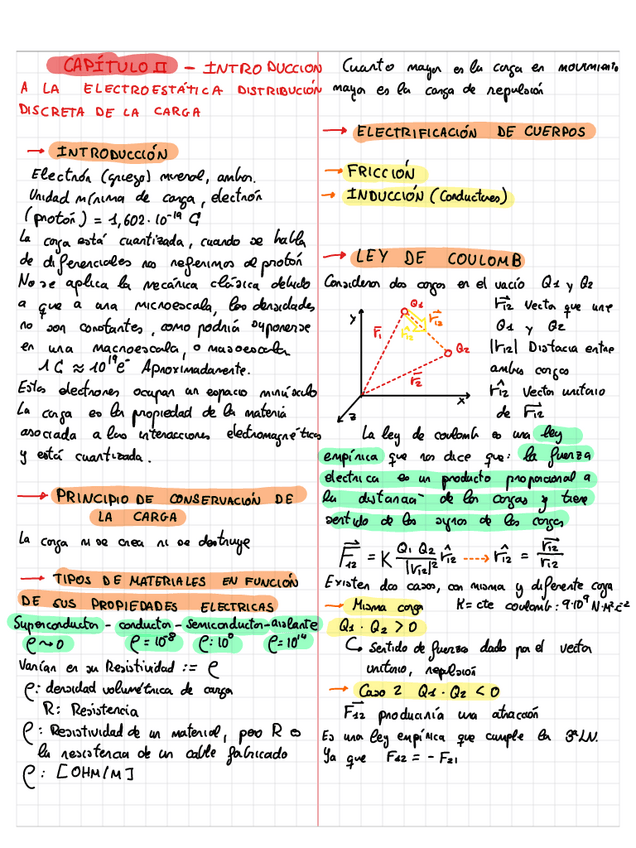 CAPÍTULO II - INTRODUCCIÓN
A LA ELECTROESTÁTICA DISTRIBUCIÓN
DISCRETA DE LA CARGA
→ INTRODUCCIÓN
Electrón (griego) mineral, ambar.
Unidad mínima de carga, electrón
(protón) = 1,602·10⁻¹⁹ C
La carga está cuantizada, cuando se habla
de diferenciales nos referimos al protón
No se aplica la mecánica clásica debido
a que a una microescala, las densidades
no son constantes, como podría suponerse
en una macroescala, o mesoescala
1 C ≈ 10¹⁹e⁻ Aproximadamente.
Estos electrones ocupan un espacio minúsculo
La carga es la propiedad de la materia
asociada a las interacciones electromagnéticas
y está cuantizada.
→ PRINCIPIO DE CONSERVACIÓN DE
LA CARGA
La carga ni se crea ni se destruye
→ TIPOS DE MATERIALES EN FUNCIÓN
DE SUS PROPIEDADES ELECTRICAS
Superconductor - conductor - semiconductor - aislante
ρ→0 ρ=10⁻⁸ ρ:10⁰ ρ=10¹⁴
Varían en su Resistividad := ρ
ρ: densidad volumétrica de carga
R: Resistencia
ρ: Resistividad de un material, pero R es
la resistencia de un cable fabricado
ρ: [OHM/M]
Cuanto mayor es la carga en movimiento
mayor es la carga de repulsión
→ ELECTRIFICACIÓN DE CUERPOS
→ FRICCIÓN
→ INDUCCIÓN (Conductores)
→ LEY DE COULOMB
Consideran dos cargas en el vacío Q1 y Q2
y Q1 r⃗12 r̂12 r⃗1 Q2 r⃗2 x z
r⃗12 Vector que une
Q1 y Q2
|r12| Distancia entre
ambas cargas
r̂12 Vector unitario
de r⃗12
La ley de coulomb es una ley
empírica que nos dice que: la fuerza
electrica es un producto proporcional a
la distancia de las cargas y tiene
sentido de los signos de las cargas
F⃗12 = K Q1 Q2 / |r12|² r̂12 ----> r̂12 = r⃗12 / r12
Existen dos casos, con misma y diferente carga
→ Misma carga K = cte coulomb: 9·10⁹ N·M²·C⁻²
Q1 · Q2 > 0
↳ Sentido de fuerzas dado por el vector
unitario, repulsión
→ Caso 2 Q1 · Q2 < 0
F⃗12 produciría una atracción
Es una ley empírica que cumple la 3ª LN.
Ya que F12 = - F21